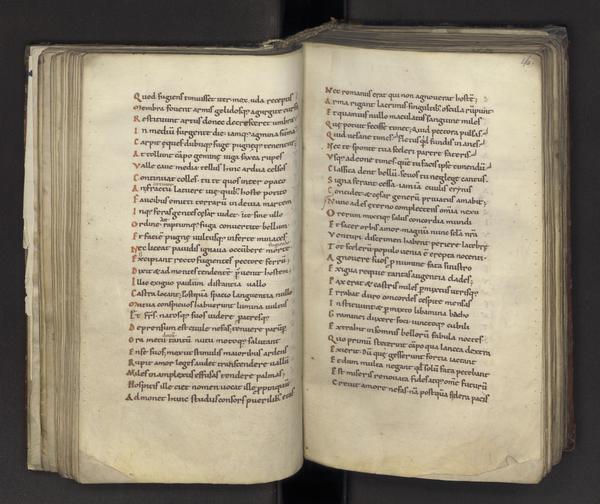 Quod fugiens timuisset iter. mox uda receptis
Membra fouent armis gelidosq; a gurgite cursu
Restituunt artus donec decresceret umbra
In mediū surgente die. iamq; agmina sūma
Carpit eques dubiusq; fugę pugnęq; tenetur.
Attollunt cāpo geminę iuga saxea rupes
Valle caua media tellus hinc ardua celsos
Continuat colles. tutę quos inter opaco
Anfractu latuere uię. quib; hoste potito
Faucibus emitti terrarū in deuia martem
Inq; feras gentes cęsar uidet. ite sine ullo
Ordine ait raptumq; fuga conuertite bellum
Et faciē pugnę uultusq; inferte minaces
Nec liceat pauidis ignaua occūbere morte
Excipiant recto fugientes pectore ferrū
Dixit & ad montes tendentem p̄uenit hostem
Illic exiguo paulum distantia uallo
Castra locant. postquā spacio languentia nullo
Mutua conspicuos habuerunt lumina uultus
Et frs̄. natosq; suos uidere patresq;
Deprensum est ciuile nefas. tenuere parūp
Ora metu tantū nutu motoq; salutant
Ense suos. mox ut stimulis maioribus ardens
Rupit amor leges audet transcendere uallū
Miles in amplexus effusas tendere palmas
Hospitis ille ciet nomen uocat ille ꝓpinquū
Admonet hunc studiis consors puerilib; etas
46
Nec romanus erat qui non agnouerat hostē
Arma rigant lacrimis singultib; oscula rūpunt
Et quamuis nullo maculatus sanguine miles
Quę potuit fecisse timet. quid pectora pulsas
Quid uesane gemis. fletus qd fundis in anes
Nec te sponte tua sceleri parere fateris
Vsq; adeone times. quē tu facis ipse timendū
Classica det bello. sęuos tu neglege cantus
Signa ferat cessa. iam iā ciuilis erynis
Concidet & cęsar generū priuatus amabit
Nunc ades ęterno complectens omīa nexu
O rerum mixtiq; salus concordia mundi
Et sacer orbis amor. magnū nunc sęcla nrā
Venturi discrimen habent. periere latebrę
Tot scelerū. populo uenia ē erepta nocenti
Agnouere suos. p numine fata sinistro
Exigua requie tantas augentia clades
Pax erat & castris miles pmixtus utrisq;
Errabat. duro concordes cespite mensas
Instituunt & pmixto libamina bacho
Graminei dixere foci. iunctoq; cubili
Extrahit in somnis bellorū fabula noctes
Quo primū steterint cāpo qua lancea dextra
Exierit. Dū quę gesserunt fortia iactant
Et dum multa negant qd solū fata petebant
Est miseris renouata fides. atq; ōme futurū
Creuit amore nefas. nā postquā fędera pacis